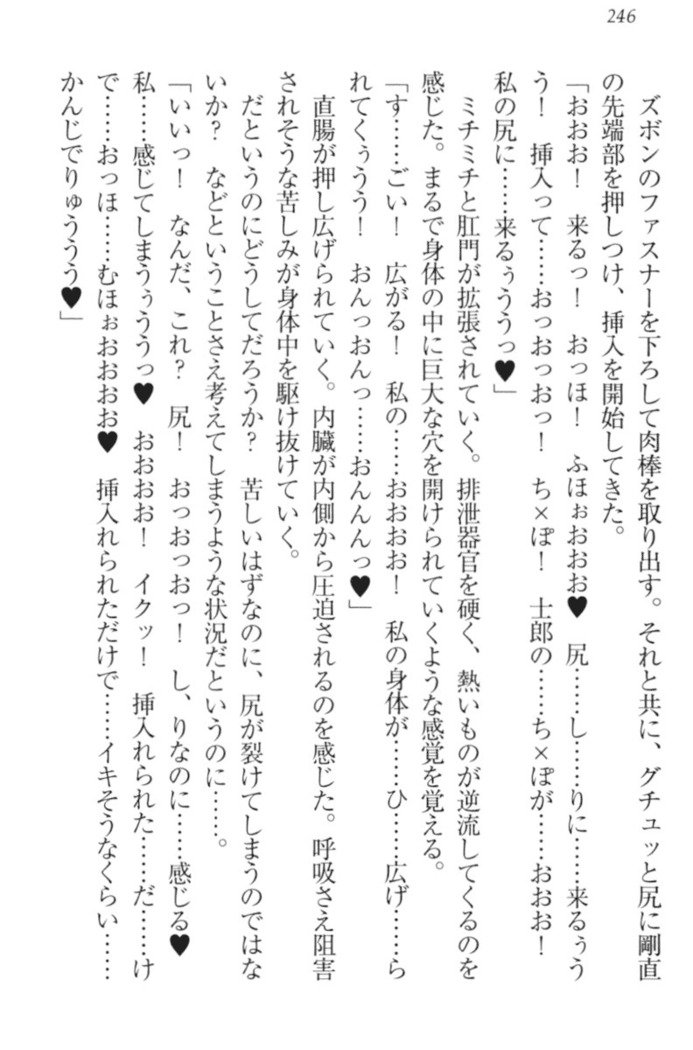 246
　ズボンのファスナーを下ろして肉棒を取り出す。それと共に、グチュッと尻に剛直
の先端部を押しつけ、挿入を開始してきた。
「おおお！　来るっ！　おっほ！　ふほぉおおお♥　尻……し……りに……来るぅう
う！　挿入って……おっおっおっ！　ち×ぽ！　士郎の……ち×ぽが……おおお！
私の尻に……来るぅううっ♥」
　ミチミチと肛門が拡張されていく。排泄器官を硬く、熱いものが逆流してくるのを
感じた。まるで身体の中に巨大な穴を開けられていくような感覚を覚える。
「す……ごい！　広がる！　私の……おおおお！　私の身体が……ひ……広げ……ら
れてくぅうう！　おんっおんっ……おんんんっ♥」
　直腸が押し広げられていく。内臓が内側から圧迫されるのを感じた。呼吸さえ阻害
されそうな苦しみが身体中を駆け抜けていく。
　だというのにどうしてだろうか？　苦しいはずなのに、尻が裂けてしまうのではな
いか？　などということさえ考えてしまうような状況だというのに……。
「いいっ！　なんだ、これ？　尻！　おっおっおっ！　し、りなのに……感じる♥
私……感じてしまうぅううっ♥　おおおお！　イクッ！　挿入れられた……だ……け
で……おっほ……むほぉおおおお♥　挿入れられただけで……イキそうなくらい……
かんじでりゅううう♥」